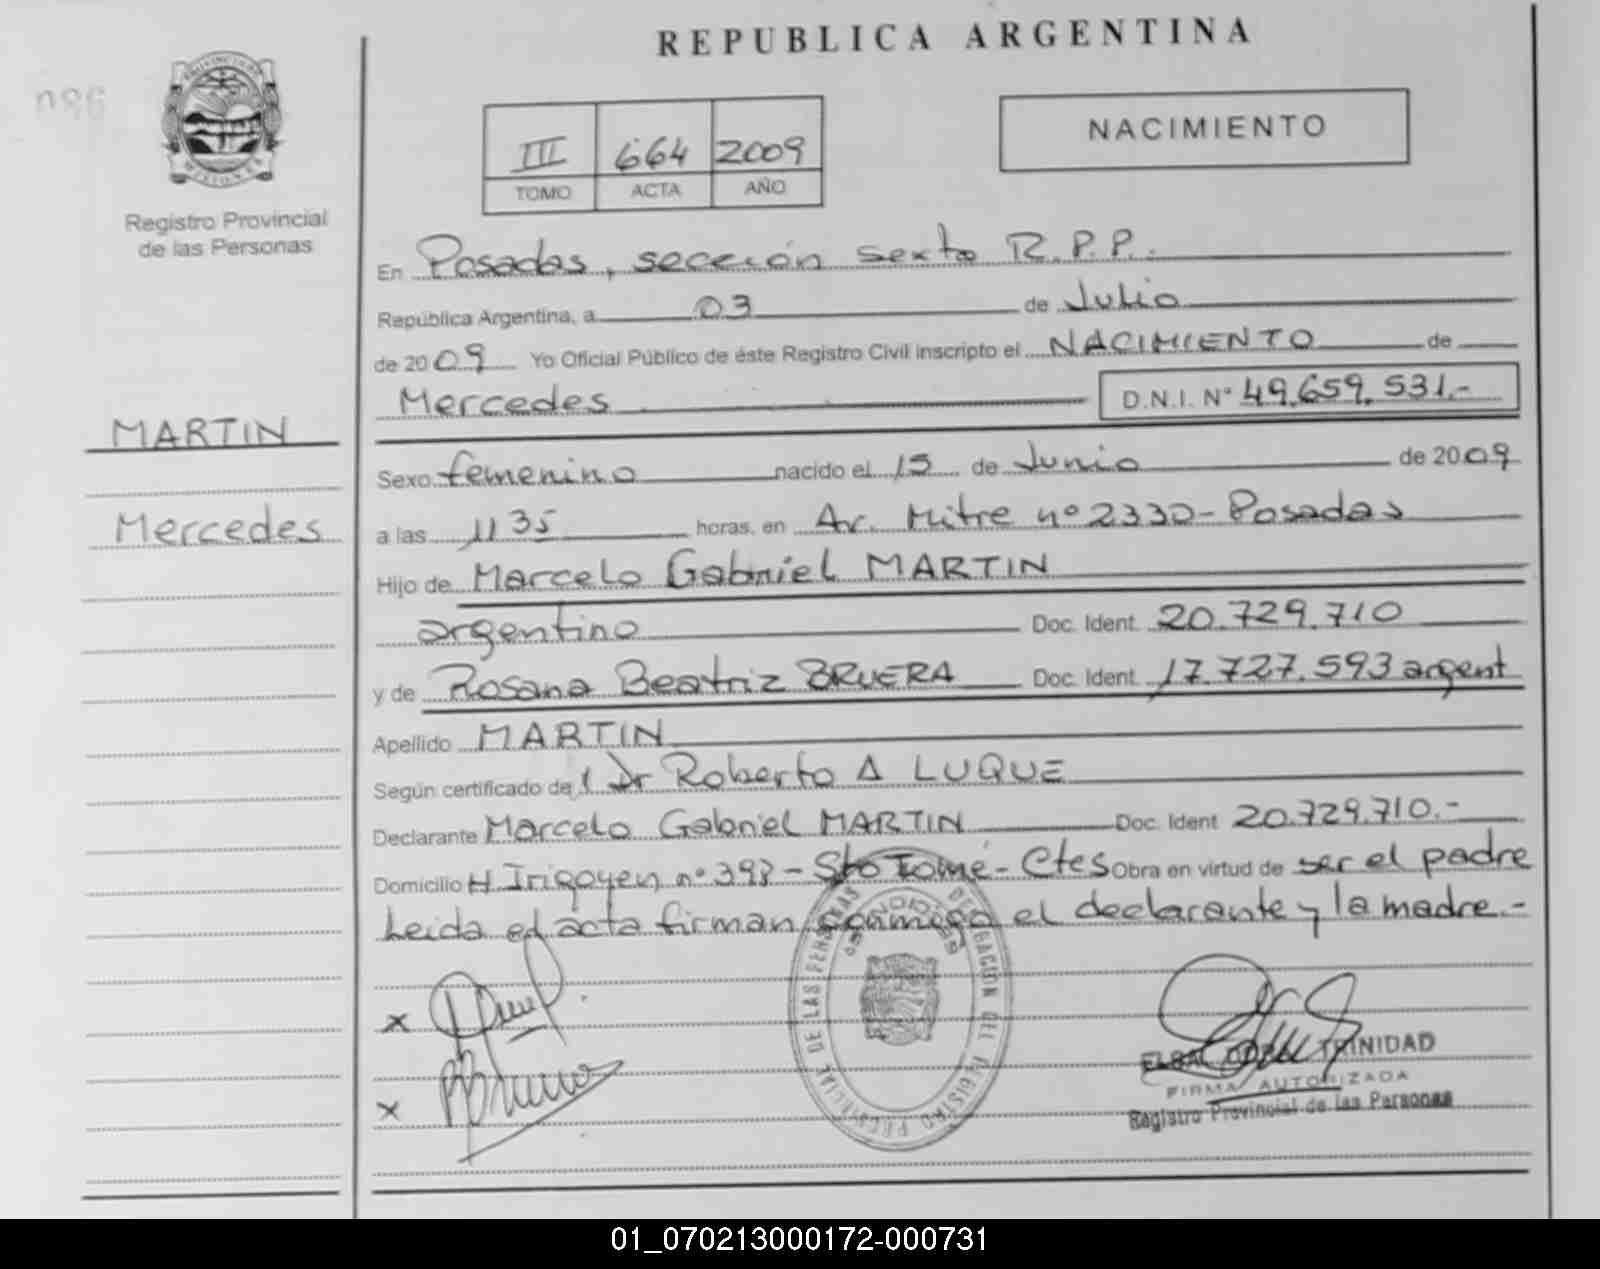 REPUBLICA ARGENTINA
III 664 2009
TOMO ACTA AÑO
NACIMIENTO
Registro Provincial
de las Personas
MARTIN
Mercedes
En Posadas, sección sexta R.P.P.
República Argentina, a 03 de Julio
de 2009 Yo Oficial Público de éste Registro Civil inscripto el NACIMIENTO de
Mercedes D.N.I. N° 49.659.531.-
Sexo femenino nacido el 15 de Junio de 2009
a las 11 35 horas, en Av. Mitre n° 2330 - Posadas
Hijo de Marcelo Gabriel MARTIN
argentino Doc. Ident. 20.729.710
y de Rosana Beatriz BRUERA Doc. Ident. 17.727.593 argent
Apellido MARTIN
Según certificado de l Dr Roberto A LUQUE
Declarante Marcelo Gabriel MARTIN Doc. Ident. 20.729.710.-
Domicilio H Irigoyen n° 398 - Sto Tomé - Ctes Obra en virtud de ser el padre
Leida el acta firman conmigo el declarante y la madre.-
x
x
DELEGACION DEL REGISTRO PROVINCIAL DE LAS PERSONAS
TRINIDAD
FIRMA AUTORIZADA
Registro Provincial de las Personas
01_070213000172-000731